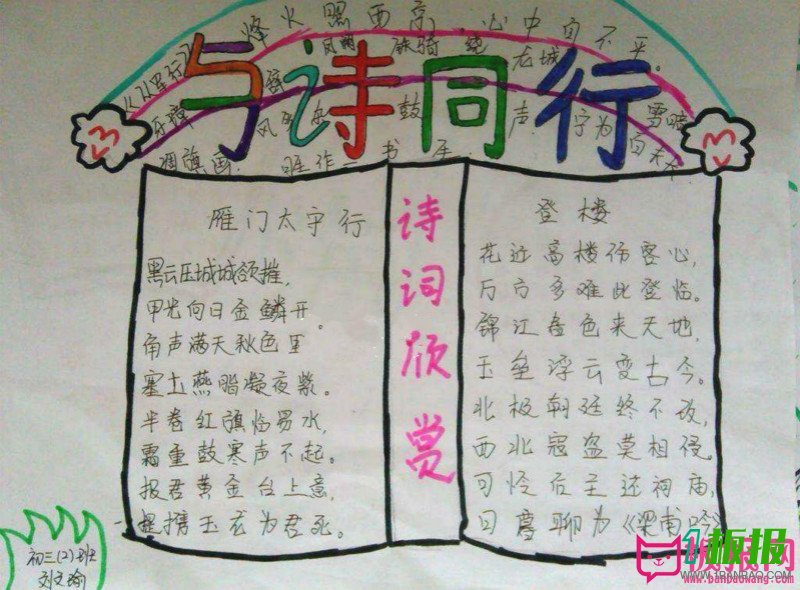 烽火照西京,心中自不平。
《从军行》
铁骑绕龙城。
与诗同行
雁门太守行
黑云压城城欲摧,
甲光向日金鳞开。
角声满天秋色里
塞土燕脂凝夜紫。
半卷红旗临易水,
霜重鼓寒声不起。
报君黄金台上意,
提携玉龙为君死。
诗词欣赏
登楼
花近高楼伤客心,
万方多难此登临。
锦江春色来天地,
玉垒浮云变古今。
北极朝廷终不改,
西北寇盗莫相侵。
可怜后主还祠庙,
日暮聊为《梁甫吟》
初三(2)班
刘文瑜
1板报
WWW.1BANBAO.COM
www.banbaowang.com